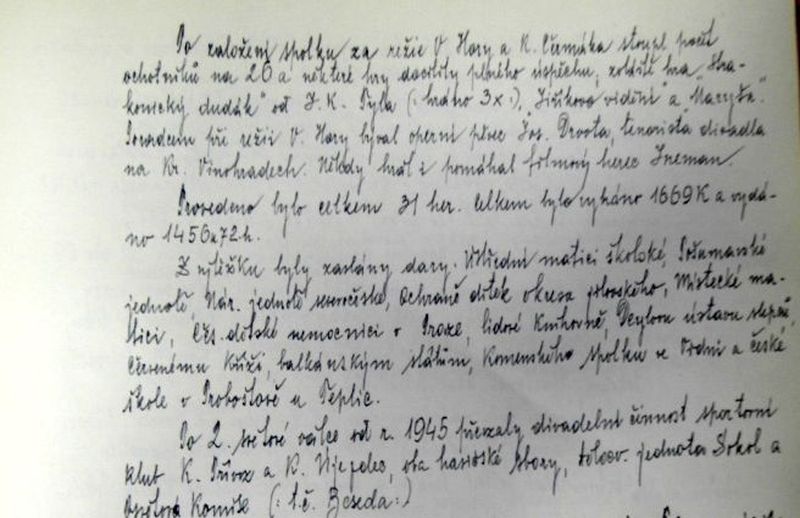 Po založení spolku za režie V. Hory a K. Čermáka stoupl počet
ochotníků na 26 a některé hry docílily plného úspěchu, zvláště hra „Stra-
konický dudák" od J. K. Tyla (: hráno 3x :), „Jiříkovo vidění" a „Maryša".
Poradcem při režii V. Hory býval operní pěvec Jos. Drvota, tenorista divadla
na Kr. Vinohradech. Někdy hrál i pomáhal filmový herec Ineman.
Provedeno bylo celkem 31 her. Celkem bylo vybráno 1669 K a vydá-
no 1456 K 72 h.
Z výtěžku byly zaslány dary: Ústřední matici školské, Pošumavské
jednotě, Nár. jednotě severočeské, Ochraně dítek okresu jílovského, Místecké ma-
tici, Čes. dětské nemocnici v Praze, lidové knihovně, Deylovu ústavu slepců,
Červenému kříži, balkánským státům, Komenského spolku ve Vídni a české
škole v Proboštově u Teplic.
Po 2. světové válce od r. 1945 převzaly divadelní činnost sportovní
klub K. Přívoz a K. Újezdec, oba hasičské sbory, tělocv. jednota Sokol a
Osvětová Komise (: t.č. Beseda :)